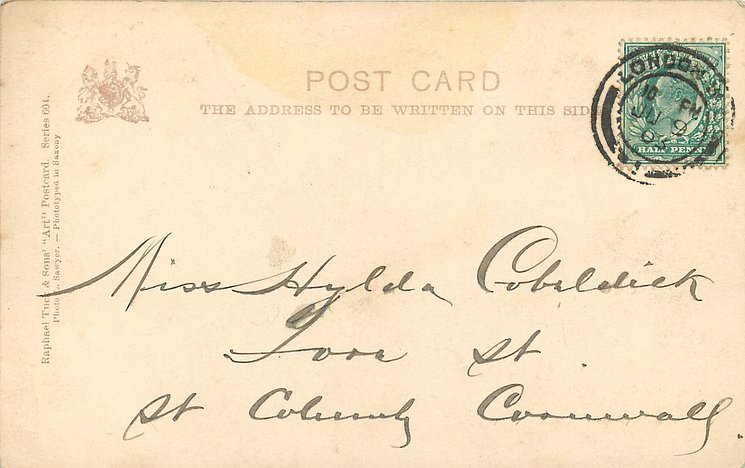 POST CARD
THE ADDRESS TO BE WRITTEN ON THIS SIDE
LONDON
HALF PENNY
Raphael Tuck & Sons' "Art" Postcard. Series 604.
Photo Sawyer. — Phototyped in Saxony
Miss Hylda Cobeldick
St
St Columb Cornwall